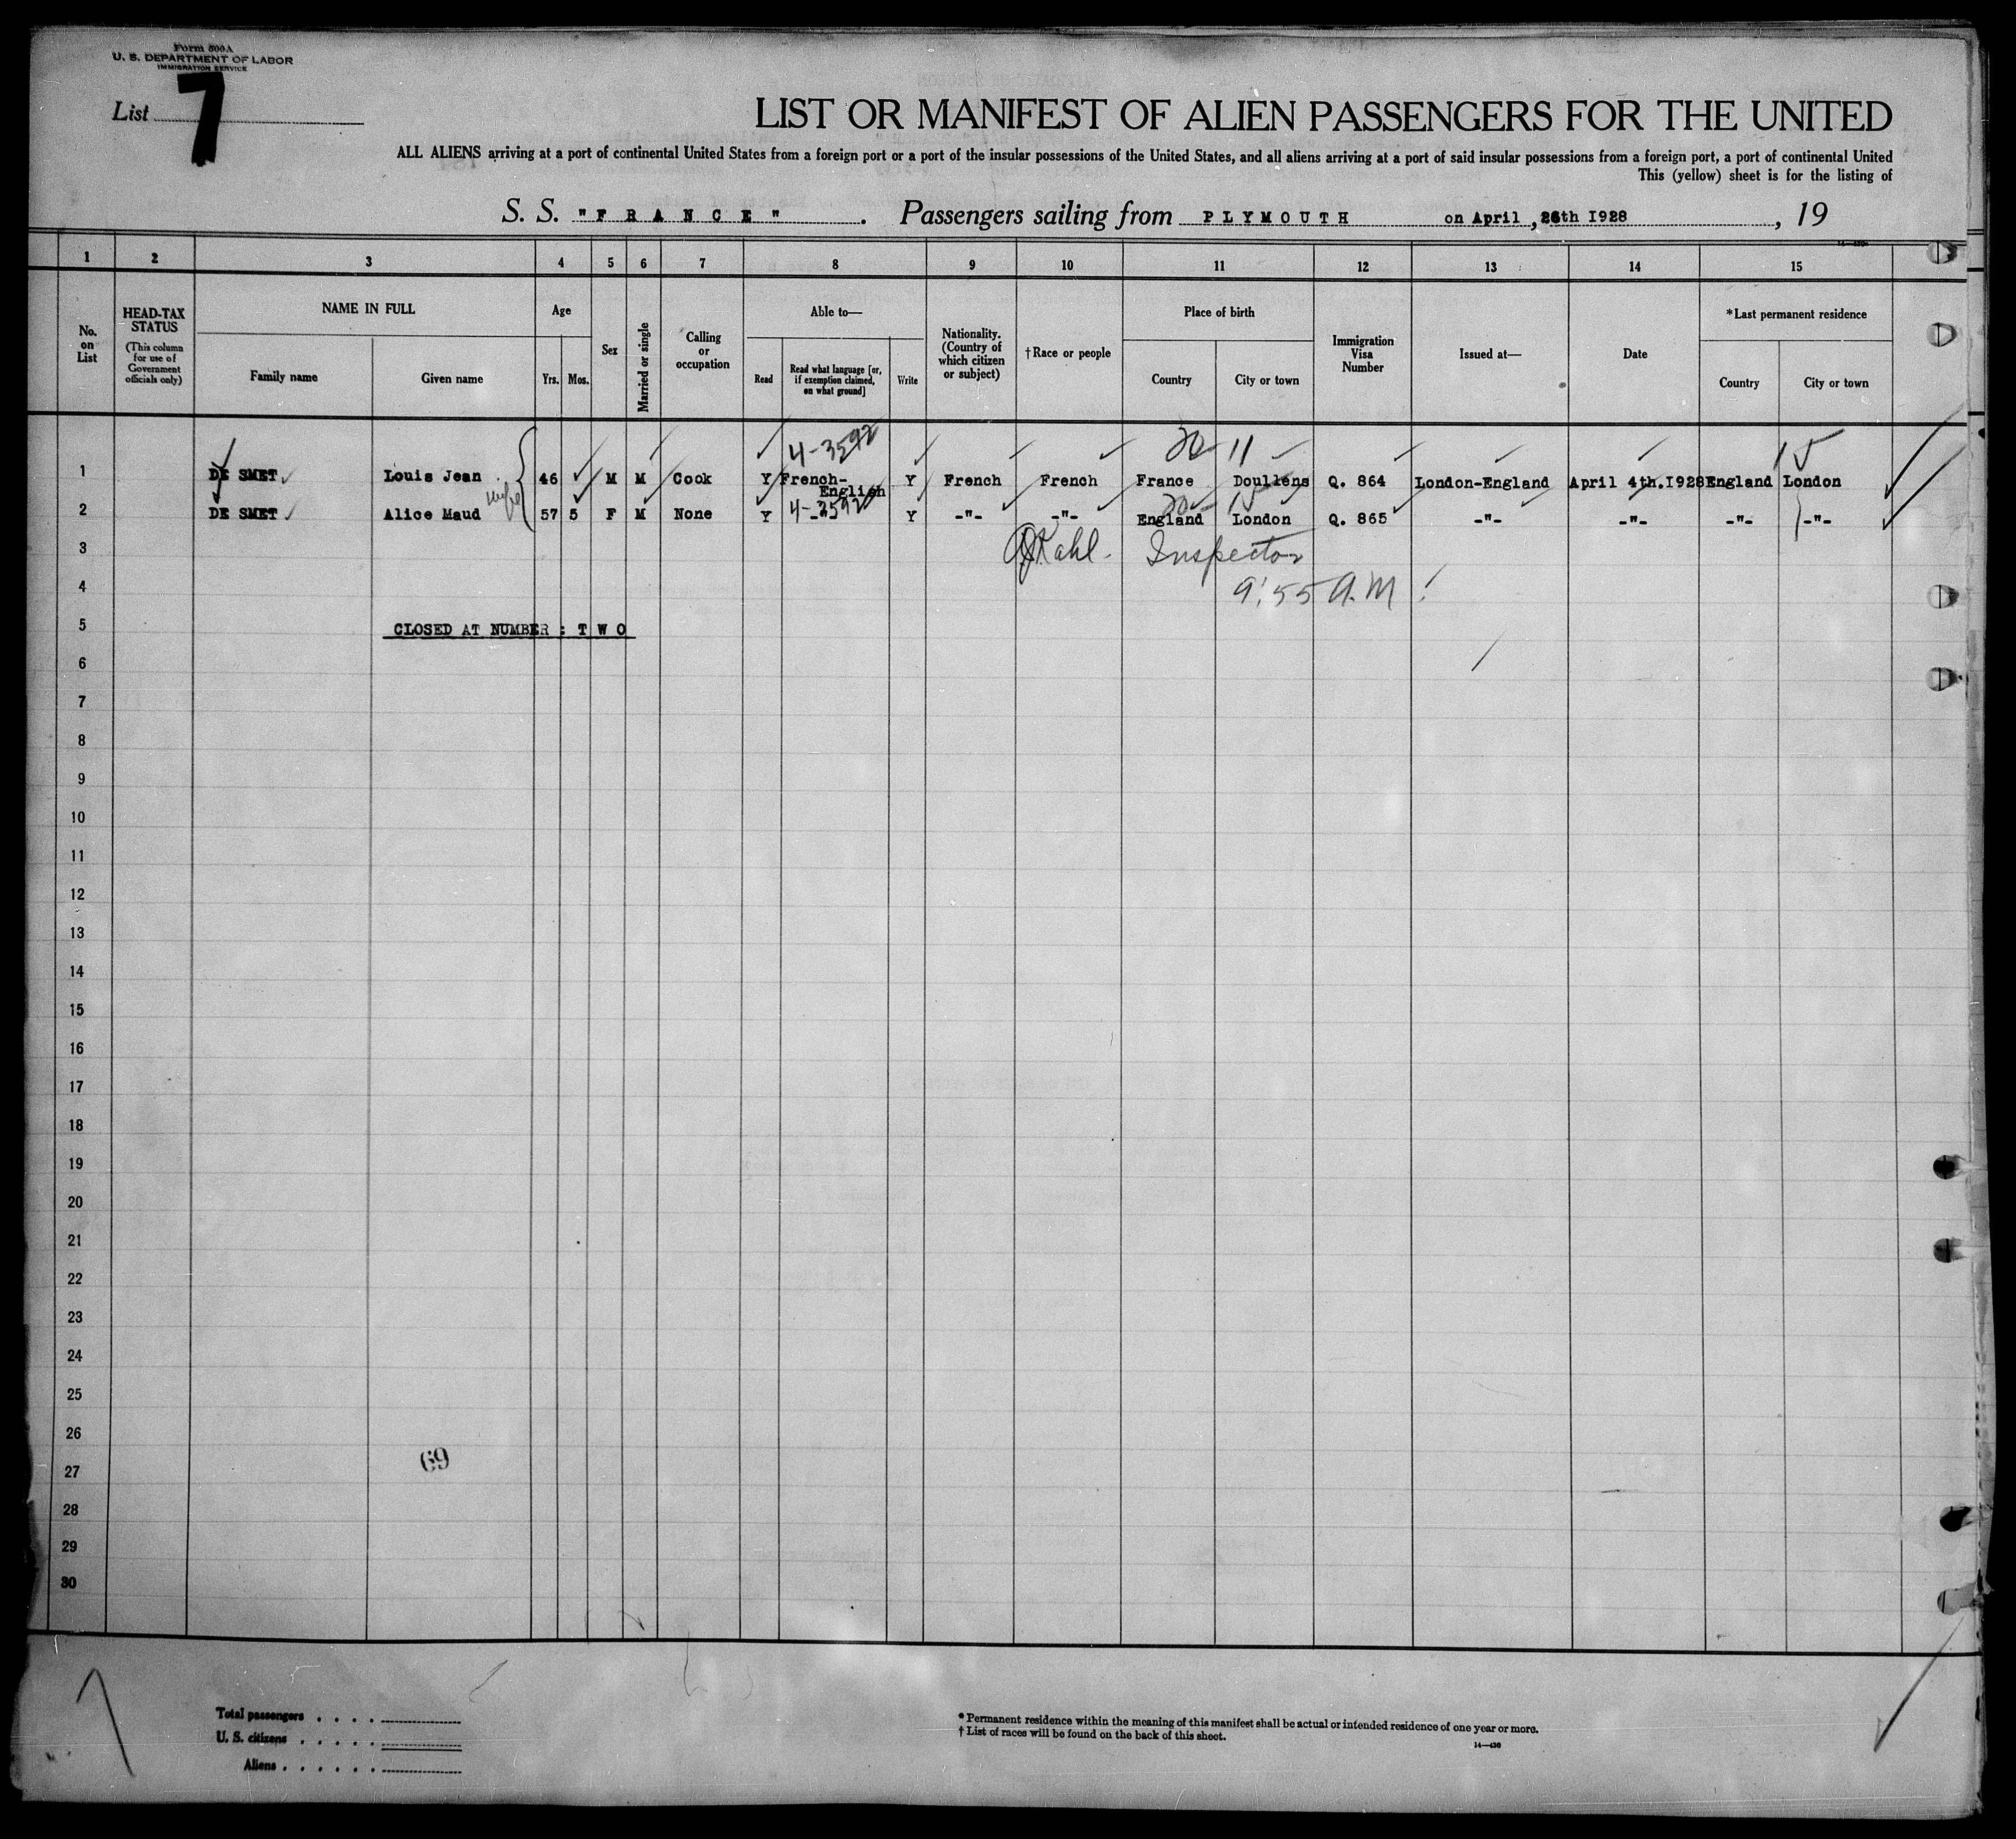 Form 500A
U. S. DEPARTMENT OF LABOR
IMMIGRATION SERVICE
List 7
LIST OR MANIFEST OF ALIEN PASSENGERS FOR THE UNITED
ALL ALIENS arriving at a port of continental United States from a foreign port or a port of the insular possessions of the United States, and all aliens arriving at a port of said insular possessions from a foreign port, a port of continental United
This (yellow) sheet is for the listing of
S. S. "FRANCE". Passengers sailing from PLYMOUTH on April, 26th 1928, 19
1 2 3 4 5 6 7 8 9 10 11 12 13 14 15
No. on List
HEAD-TAX STATUS
(This column for use of Government officials only)
NAME IN FULL
Family name
Given name
Age
Yrs. Mos.
Sex
Married or single
Calling or occupation
Able to—
Read
Read what language [or, if exemption claimed, on what ground]
Write
Nationality. (Country of which citizen or subject)
†Race or people
Place of birth
Country
City or town
Immigration Visa Number
Issued at—
Date
*Last permanent residence
Country
City or town
4-3592 20 11 15
1 DE SMET Louis Jean 46 M M Cook Y French-English Y French French France Doullens Q. 864 London-England April 4th.1928 England London
wife 4-3592 20 15
2 DE SMET Alice Maud 57 5 F M None Y -"- Y -"- -"- England London Q. 865 -"- -"- -"- -"-
3 Kahl. Inspector
4 9:55 A.M
5 CLOSED AT NUMBER : TWO
6
7
8
9
10
11
12
13
14
15
16
17
18
19
20
21
22
23
24
25
26
69
27
28
29
30
Total passengers . . . .
U. S. citizens . . . . .
Aliens . . . . . .
* Permanent residence within the meaning of this manifest shall be actual or intended residence of one year or more.
† List of races will be found on the back of this sheet.
14—430